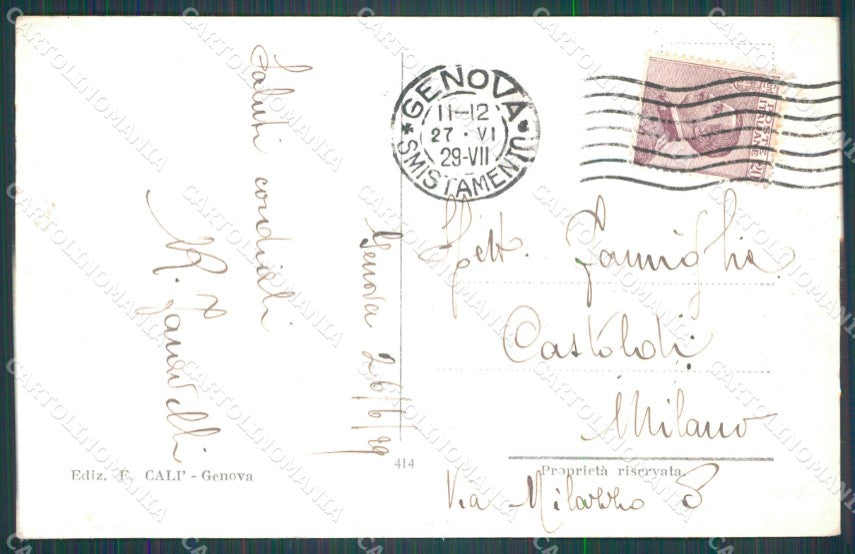 Saluti cordiali
Genova 26/6/29
GENOVA
11-12
27 · VI
29-VII
SMISTAMENTO
POSTE
ITALIANE
Spett. Famiglia
Castoldi
Milano
Via Milazzo 8
Ediz. F. CALI' - Genova
414
Proprietà riservata
CARTOLINOMANIA